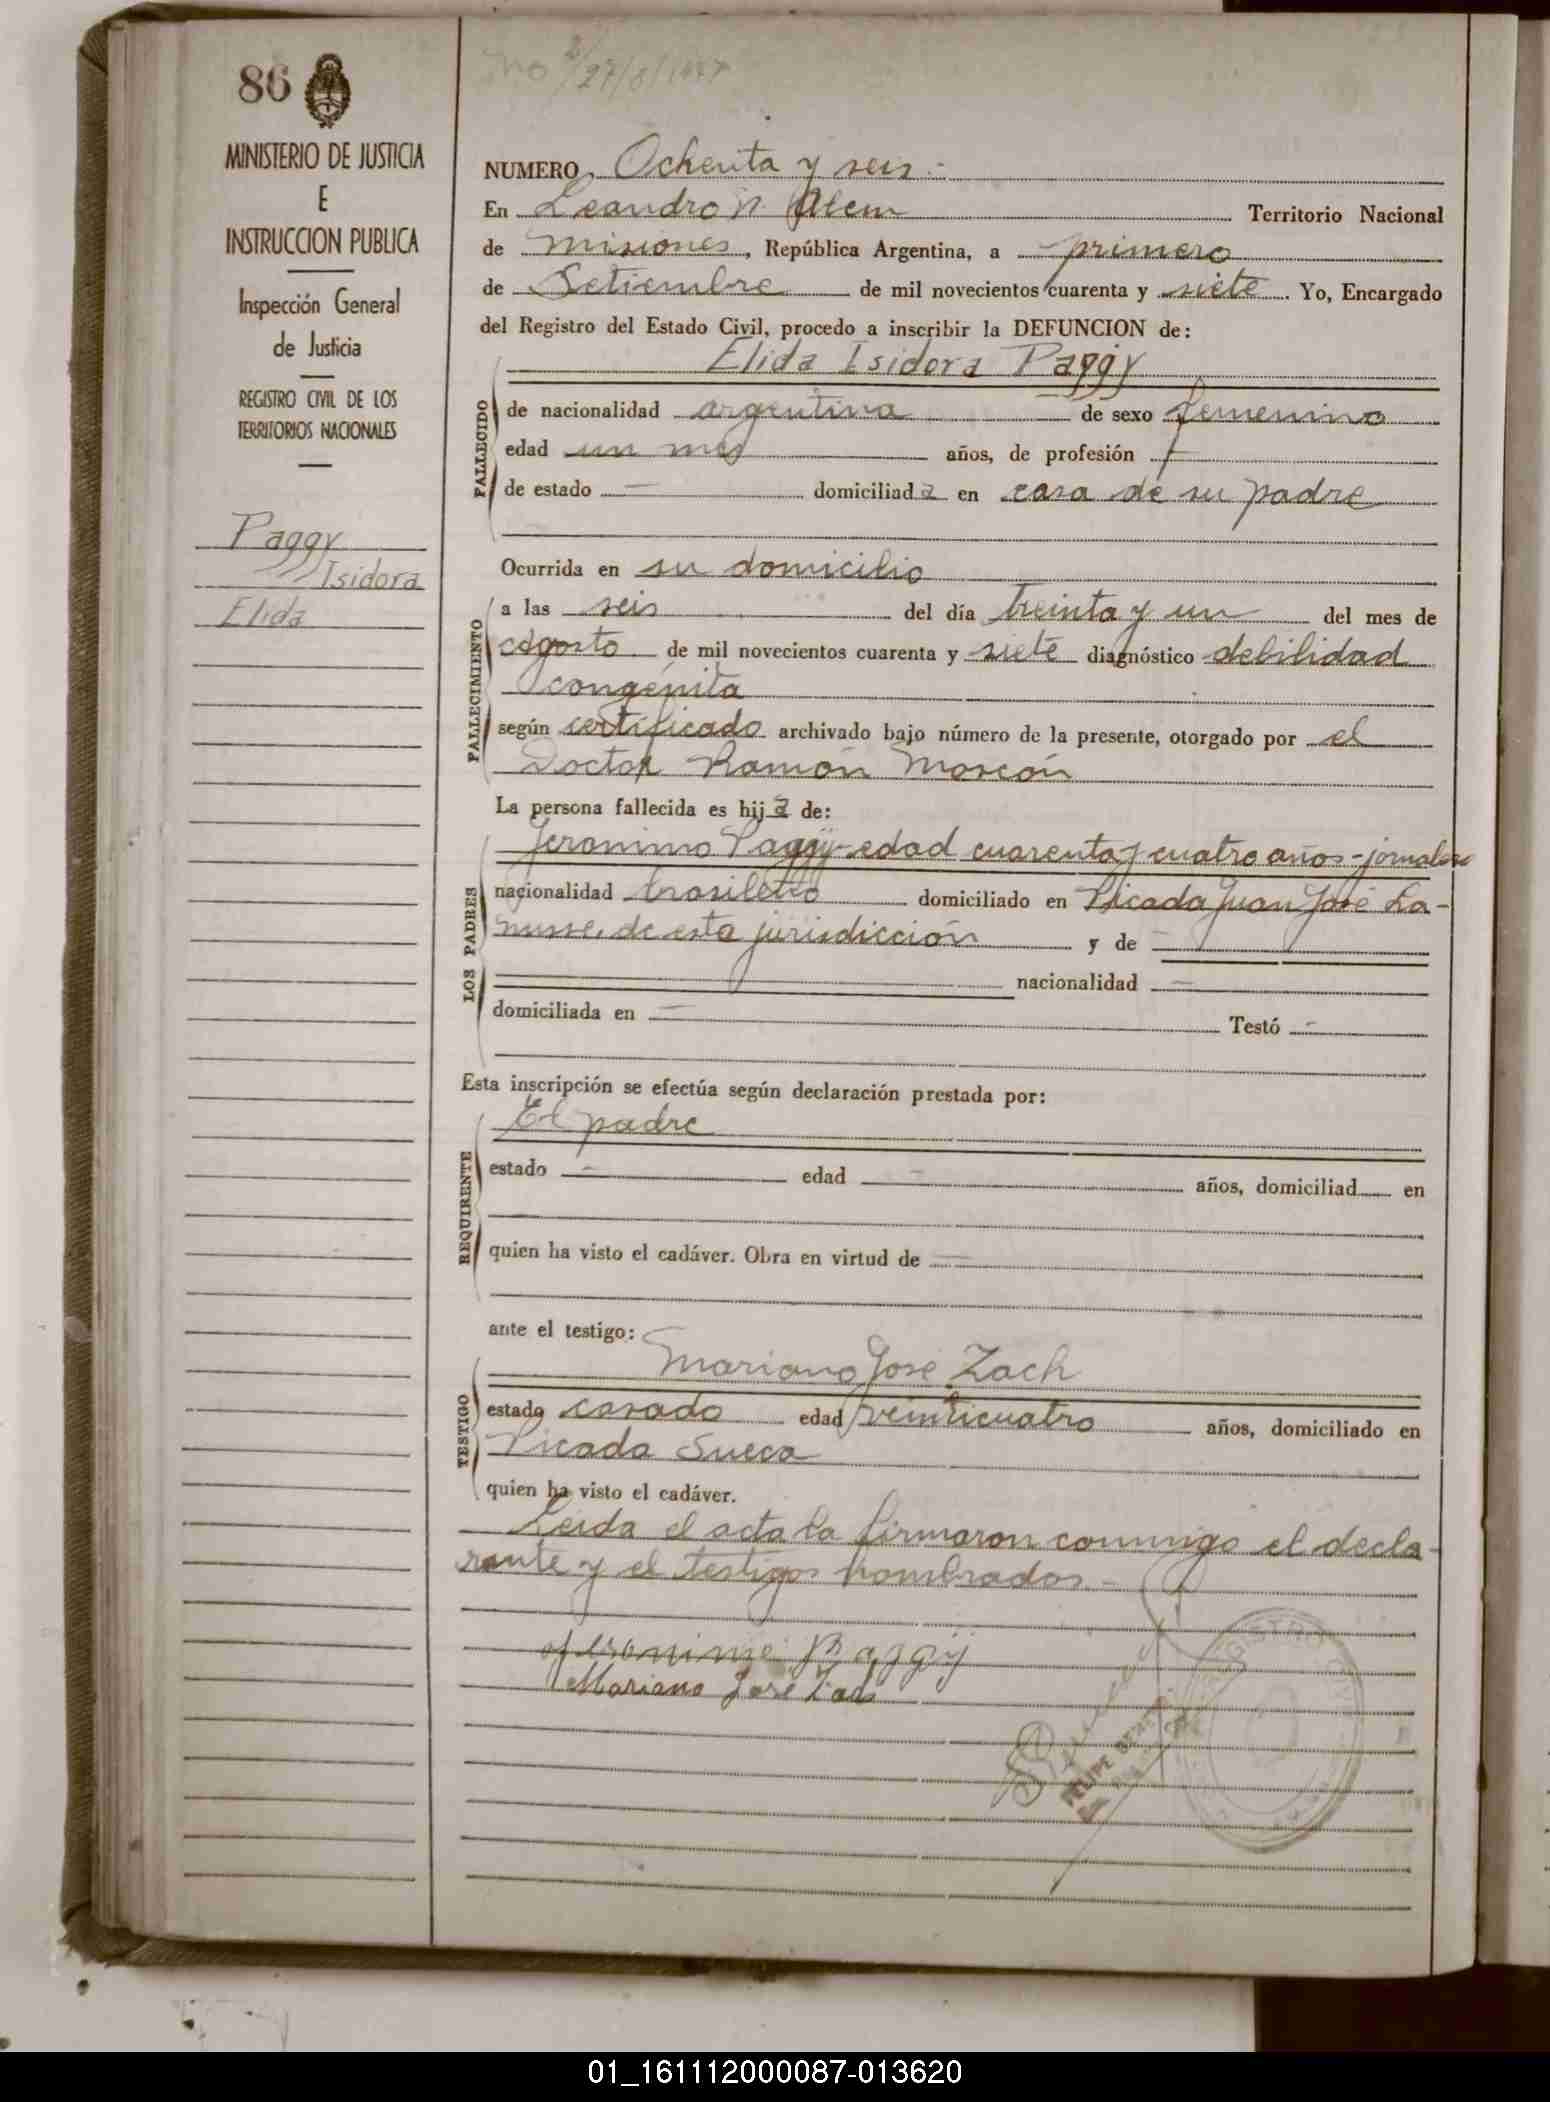 86
MINISTERIO DE JUSTICIA
E
INSTRUCCION PUBLICA
Inspección General
de Justicia
REGISTRO CIVIL DE LOS
TERRITORIOS NACIONALES
Paggy
Isidora
Elida
NUMERO Ochenta y seis.-
En Leandro N Alem Territorio Nacional
de Misiones, República Argentina, a primero
de Setiembre de mil novecientos cuarenta y siete. Yo, Encargado
del Registro del Estado Civil, procedo a inscribir la DEFUNCION de:
Elida Isidora Paggy
FALLECIDO
de nacionalidad argentina de sexo femenino
edad un mes años, de profesión -
de estado - domiciliada en casa de su padre
Ocurrida en su domicilio
FALLECIMIENTO
a las seis del día treinta y un del mes de
Agosto de mil novecientos cuarenta y siete diagnóstico debilidad
congénita
según certificado archivado bajo número de la presente, otorgado por el
Doctor Ramón
La persona fallecida es hija de:
LOS PADRES
Jeronimo Paggy-edad cuarenta y cuatro años-jornalero
nacionalidad brasileño domiciliado en Picada Juan José La-
nusse, de esta jurisdicción y de -
nacionalidad -
domiciliada en - Testó -
Esta inscripción se efectúa según declaración prestada por:
REQUIRENTE
El padre
estado - edad - años, domiciliad en
quien ha visto el cadáver. Obra en virtud de -
ante el testigo:
TESTIGO
Mariano José Zach
estado casado edad veinticuatro años, domiciliado en
Picada Sueca
quien ha visto el cadáver.
Leida el acta la firmaron conmigo el decla-
rante y el testigos nombrados.-
Jeronimo Paggÿ
Mariano José Zach
FELIPE
REGISTRO
01_161112000087-013620